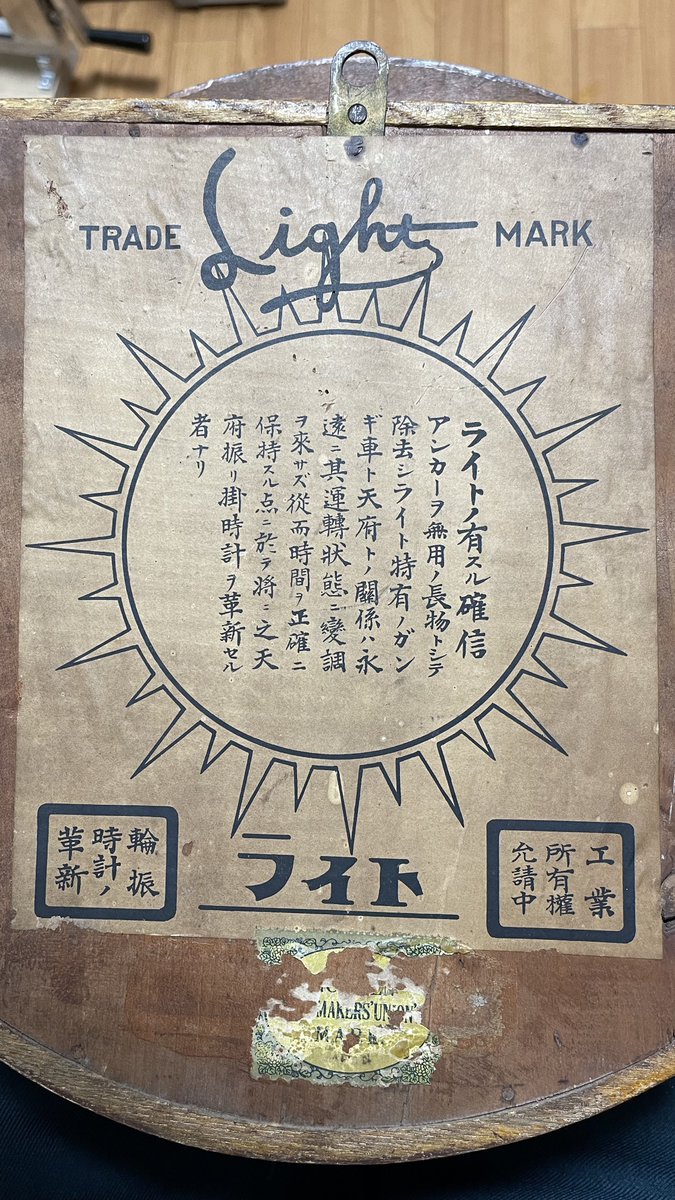 TRADE Light MARK
ライトノ有スル確信
アンカーヲ無用ノ長物トシテ
除去シライト特有ノガン
ギ車ト天府トノ關係ハ永
遠ニ其運轉状態ニ變調
ヲ來サズ從而時間ヲ正確ニ
保持スル点ニ於テ將ニ之天
府振リ掛時計ヲ革新セル
者ナリ
ライト
工業
所有權
允請中
輪振
時計ノ
革新
MAKERS' UNION
MARK